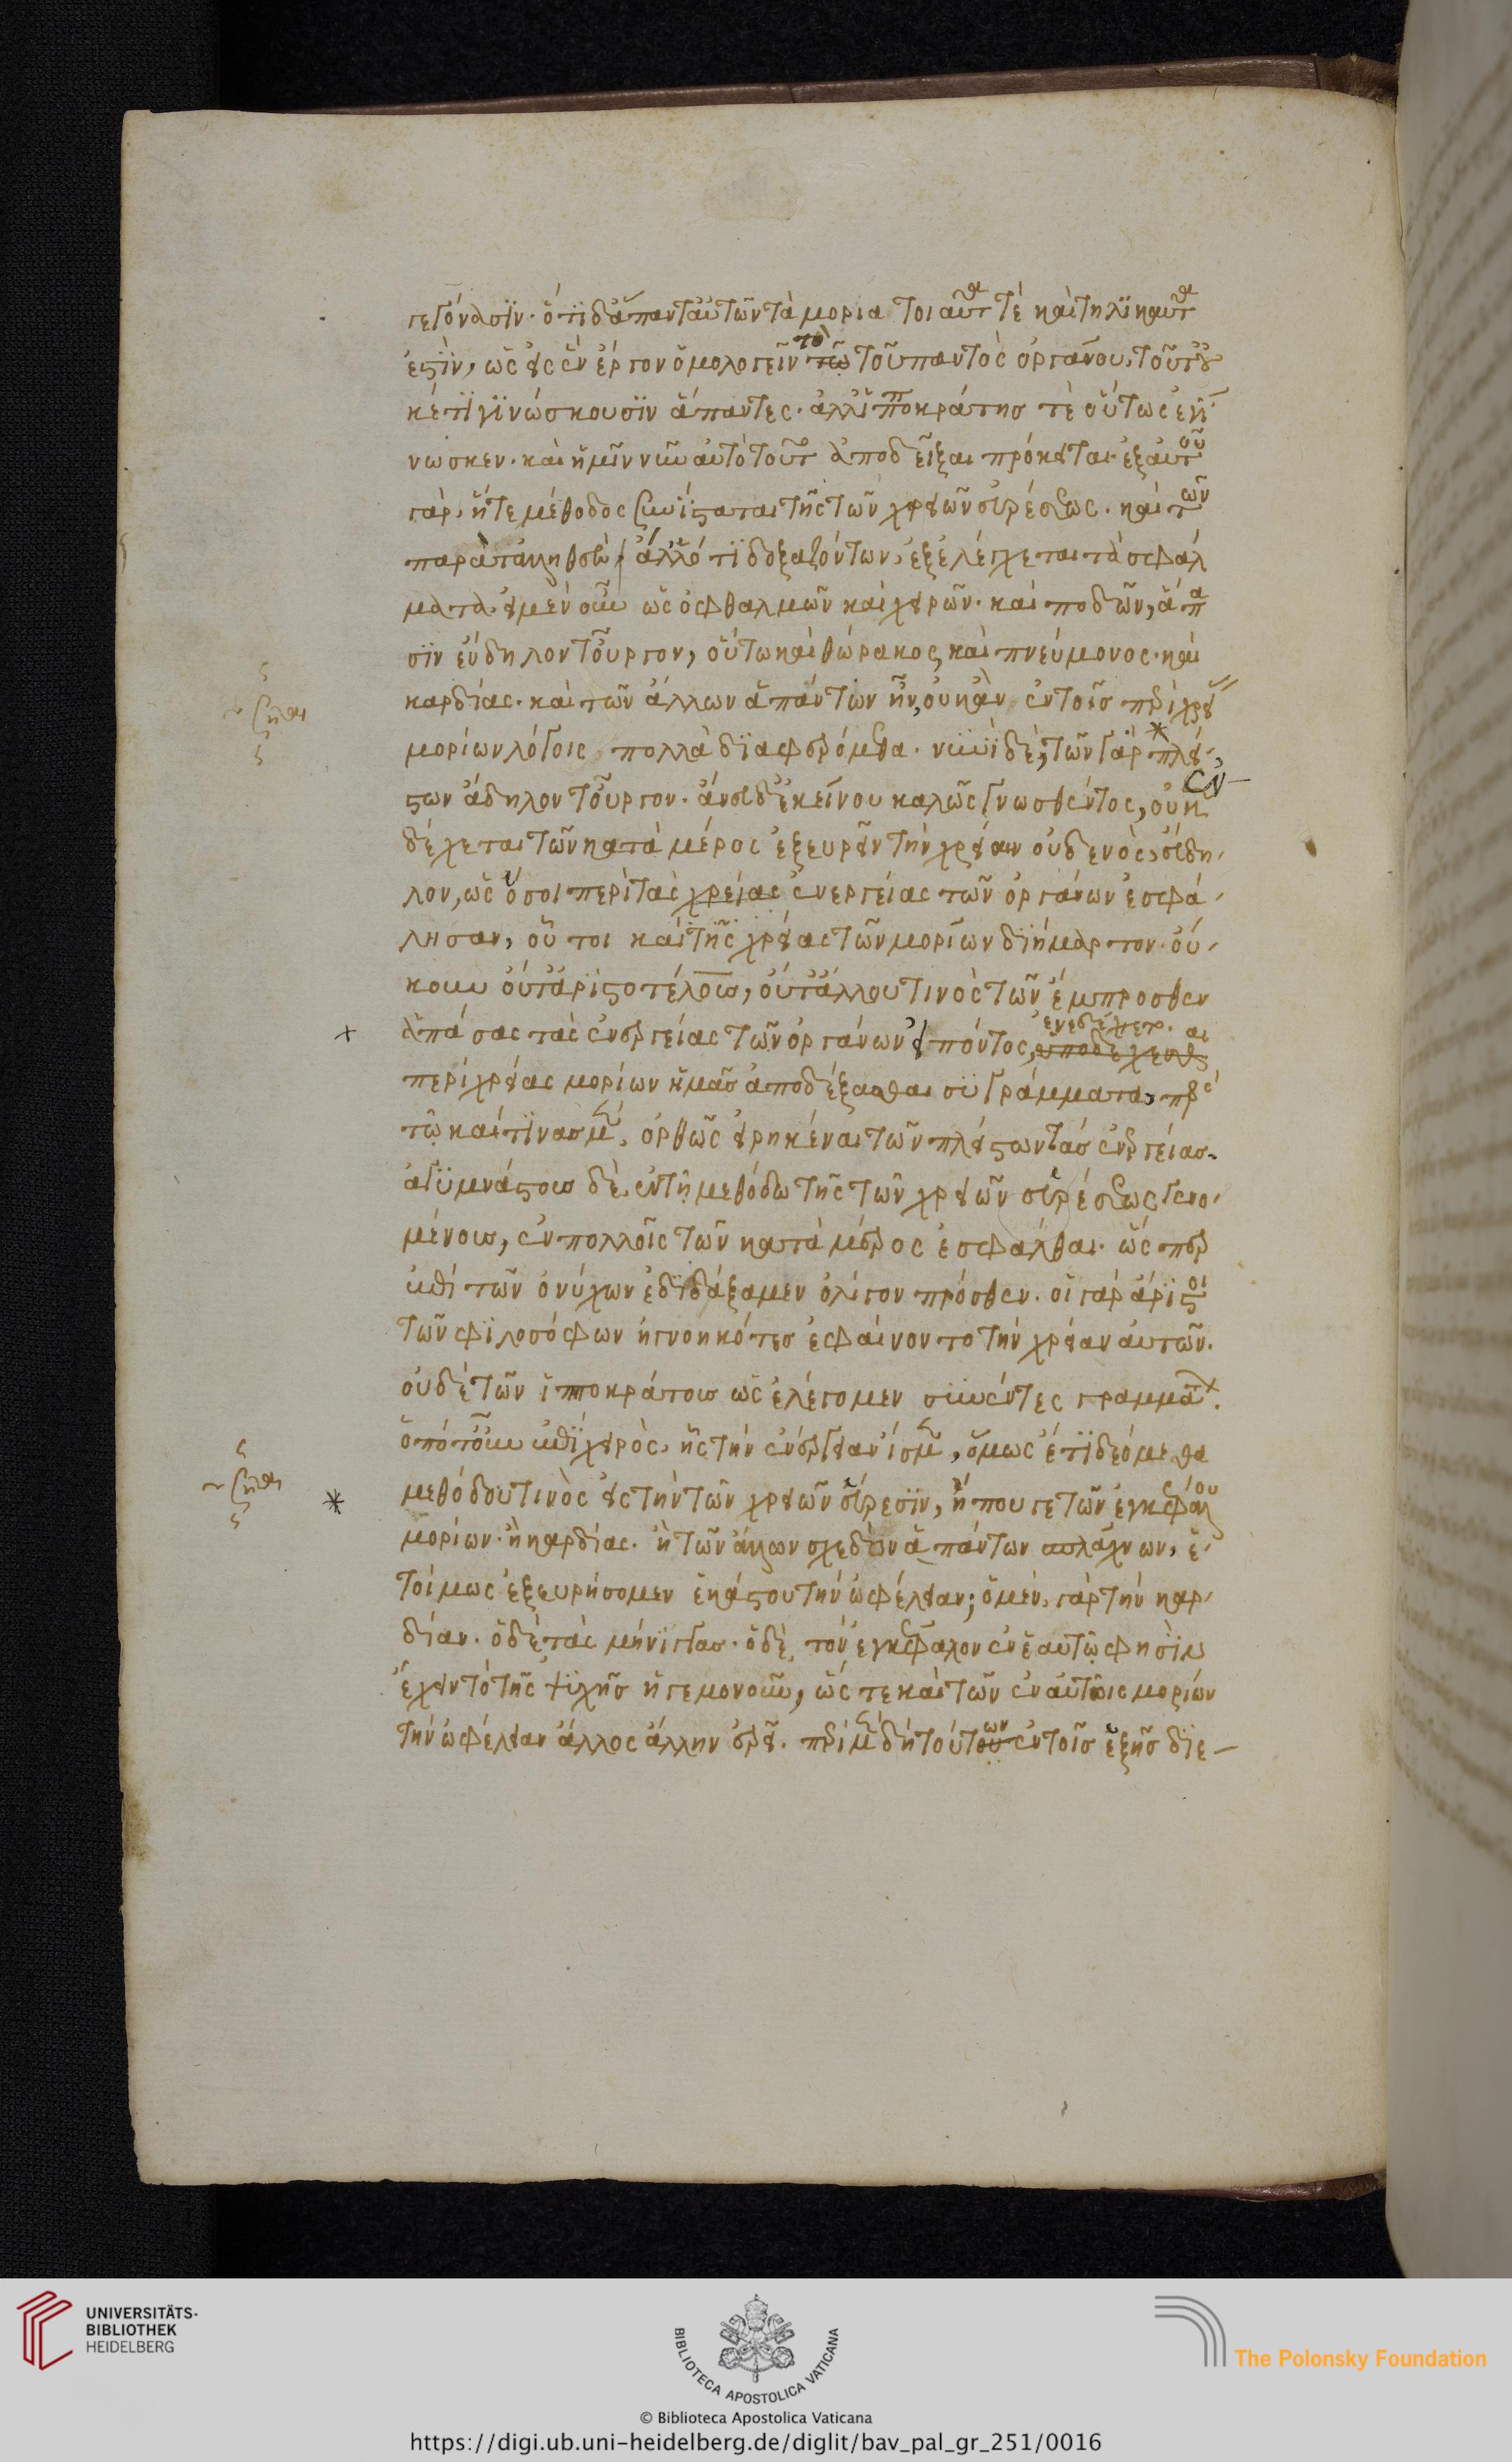 γεγόνασιν· ὅτι δ' ἅπαντ' αὐτῶν τὰ μόρια τοιαῦτα τὲ καὶ τηλικαῦτα
ἐστὶν, ὡς εἰς ἓν ἔργον ὁμολογεῖν τὸ τῶ τοῦ παντὸς ὀργάνου, τοῦτ' οὐ
κέτι γινώσκουσιν ἅπαντες· ἀλλ' ἱπποκράτης τὲ οὕτως ἐγί
νωσκεν· καὶ ἡμῖν νῦν αὐτὸ τοῦτο ἀποδεῖξαι πρόκειται· ἐξ αὐτοῦ
γὰρ, ἥ τε μέθοδος συνίσταται τῆς τῶν χρειῶν εὑρέσεως. καὶ τῶν
παρὰ τἀληθὲς ἄλλό τι δοξαζόντων, ἐξελέγχεται τὰ σφάλ
ματα. εἰ μὲν οὖν ὡς ὀφθαλμῶν καὶ χειρῶν· καὶ ποδῶν, ἅπα
σιν εὔδηλον τοὖργον, οὕτω καὶ θώρακος, καὶ πνεύμονος· καὶ
καρδίας· καὶ τῶν ἄλλων ἁπάντων ἦν, οὐκ ἂν ἐν τοῖς περὶ χρεί
μορίων λόγοις πολλὰ διαφερόμεθα. νυνὶ δὲ, τῶν γὰρ πλεί
ζητει
στων ἄδηλον τοὖργον· ἄνευ δ' ἐκείνου καλῶς γνωσθέντος, οὐκ ἐν
δέχεται τῶν κατὰ μέρος ἐξευρεῖν τὴν χρείαν οὐδενὸς, εὔδη
λον, ὡς ὅσοι περὶ τὰς χρείας ἐνεργείας τῶν ὀργάνων ἐσφά
λησαν, οὗτοι καὶ τῆς χρείας τῶν μορίων διήμαρτον· οὔ
κουν οὔτ' ἀριστοτέλους, οὔτ' ἄλλου τινὸς τῶν ἔμπροσθεν
ἁπάσας τὰς ἐνεργείας τῶν ὀργάνων εἰπόντος, ἐνεδέχετο
περὶ χρείας μορίων ἡμᾶς ἀποδέξασθαι συγράμματα, πρὸς
τῶ καί τινας μὲν, ὀρθῶς εἰρηκέναι τῶν πλείστων τὰς ἐνεργείας
ἀγυμνάστους δὲ, ἐν τῇ μεθόδω τῆς τῶν χρειῶν εὑρέσεως γενο
μένους, ἐν πολλοῖς τῶν κατὰ μέρος ἐσφάλθαι· ὥσπερ
κἀπὶ τῶν ὀνύχων ἐδιδάξαμεν ὀλίγον πρόσθεν. οἱ γὰρ ἄριστοι
τῶν φιλοσόφων ἠγνοηκότες ἐφαίνοντο τὴν χρείαν αὐτῶν.
οὐδὲ τῶν ἱπποκράτους ὡς ἐλέγομεν συνιέντες γραμμάτ.
ὁπότ' οὖν κἀπὶ χειρὸς, ἧς τὴν ἐνέργειαν ἴσμεν, ὅμως ἔτι δεόμεθα
ζητει
μεθόδου τινὸς εἰς τὴν τῶν χρειῶν εὕρεσιν, ἦ που γε τῶν ἐγκεφάλου
μορίων· ἢ καρδίας· ἢ τῶν ἄλλων σχεδὸν ἁπάντων σπλάχνων, ἑ
τοίμως ἐξευρήσομεν ἑκάστου τὴν ὠφέλειαν; ὁ μὲν, γὰρ τὴν καρ
δίαν· ὁ δὲ τὰς μήνιγγας· ὁ δὲ, τὸν ἐγκέφαλον ἐν ἑαυτῷ φησὶν
ἔχειν τὸ τῆς ψυχῆς ἡγεμονοῦν, ὥστε καὶ τῶν ἐν αὐτοῖς μορίων
τὴν ὠφέλειαν ἄλλος ἄλλην ἐρεῖ. περὶ μὲν δὴ τούτων ἐν τοῖς ἑξῆς διε
UNIVERSITÄTS-
BIBLIOTHEK
HEIDELBERG
BIBLIOTECA APOSTOLICA VATICANA
The Polonsky Foundation
© Biblioteca Apostolica Vaticana
https://digi.ub.uni-heidelberg.de/diglit/bav_pal_gr_251/0016